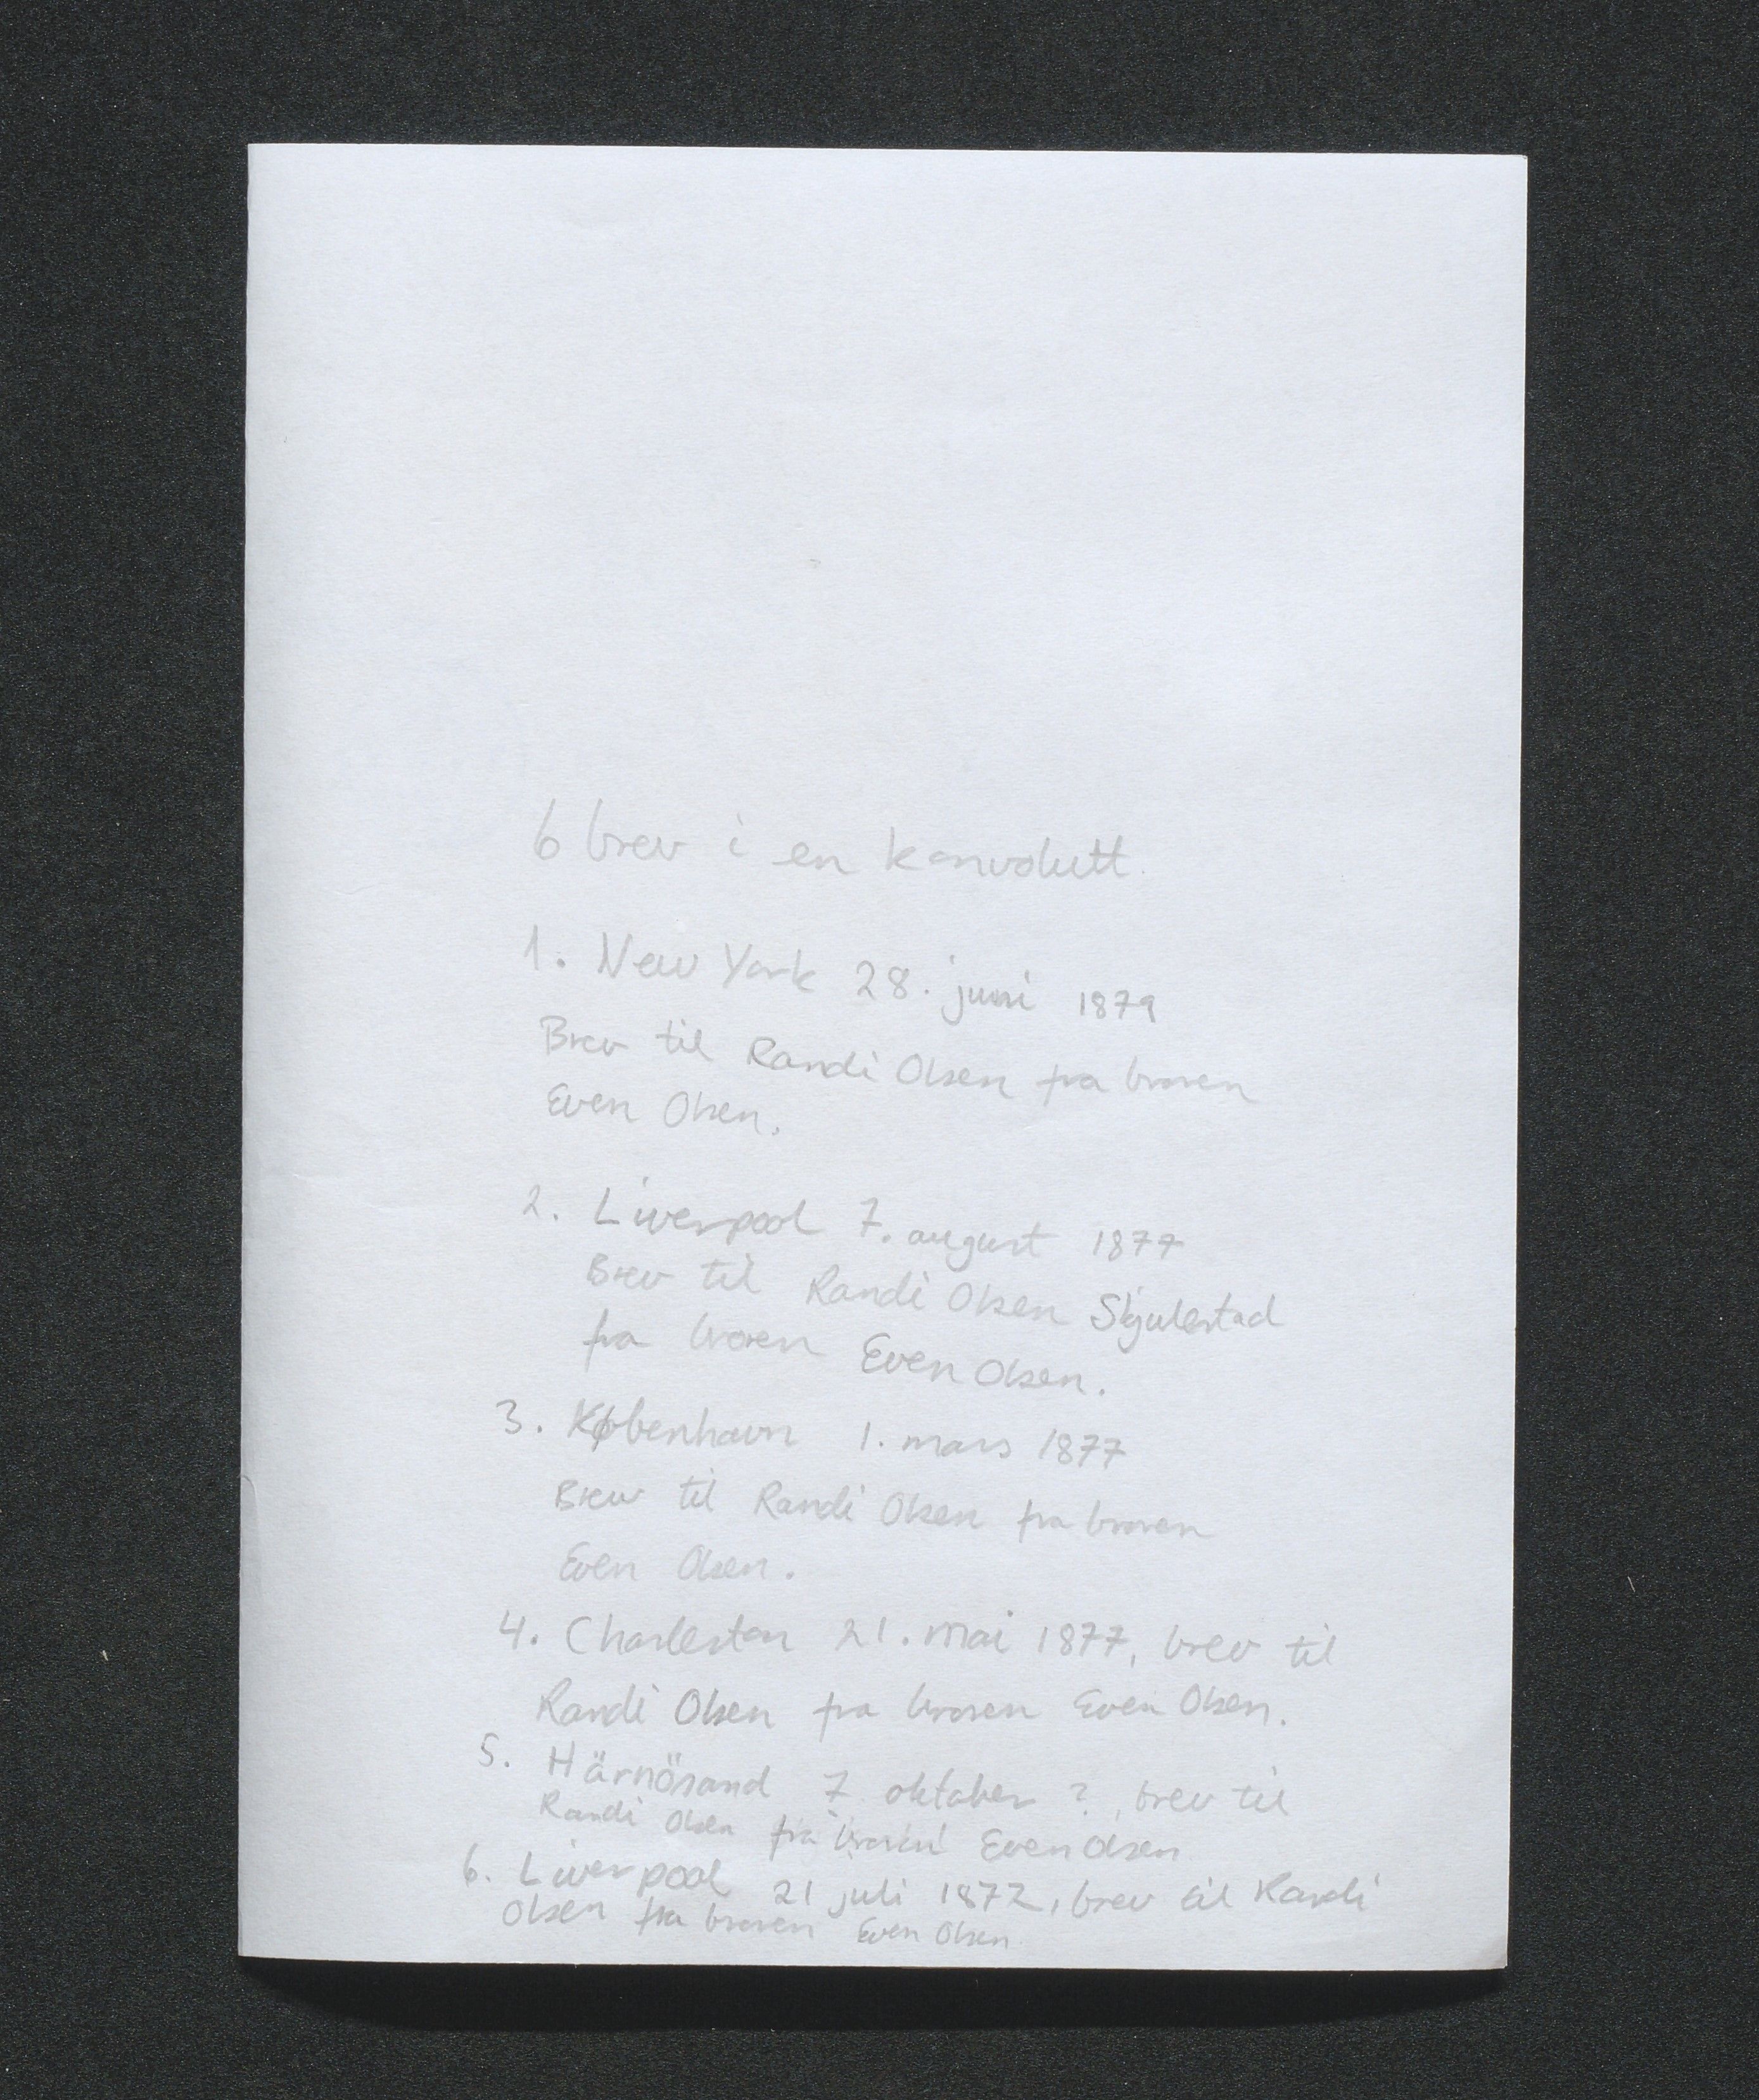 6 brev i en konvolutt.
1. New York 28. juni 1879
Brev til Randi Olsen fra broren
Even Olsen.
2. Liverpool 7. august 1877
Brev til Randi Olsen Skjulestad
fra broren Even Olsen.
3. København 1. mars 1877
Brev til Randi Olsen fra broren
Even Olsen.
4. Charleston 21. mai 1877, brev til
Randi Olsen fra broren Even Olsen.
5. Härnösand 7. oktober ?, brev til
Randi Olsen fra broren Even Olsen
6. Liverpool 21 juli 1872, brev til Randi
Olsen fra broren Even Olsen.